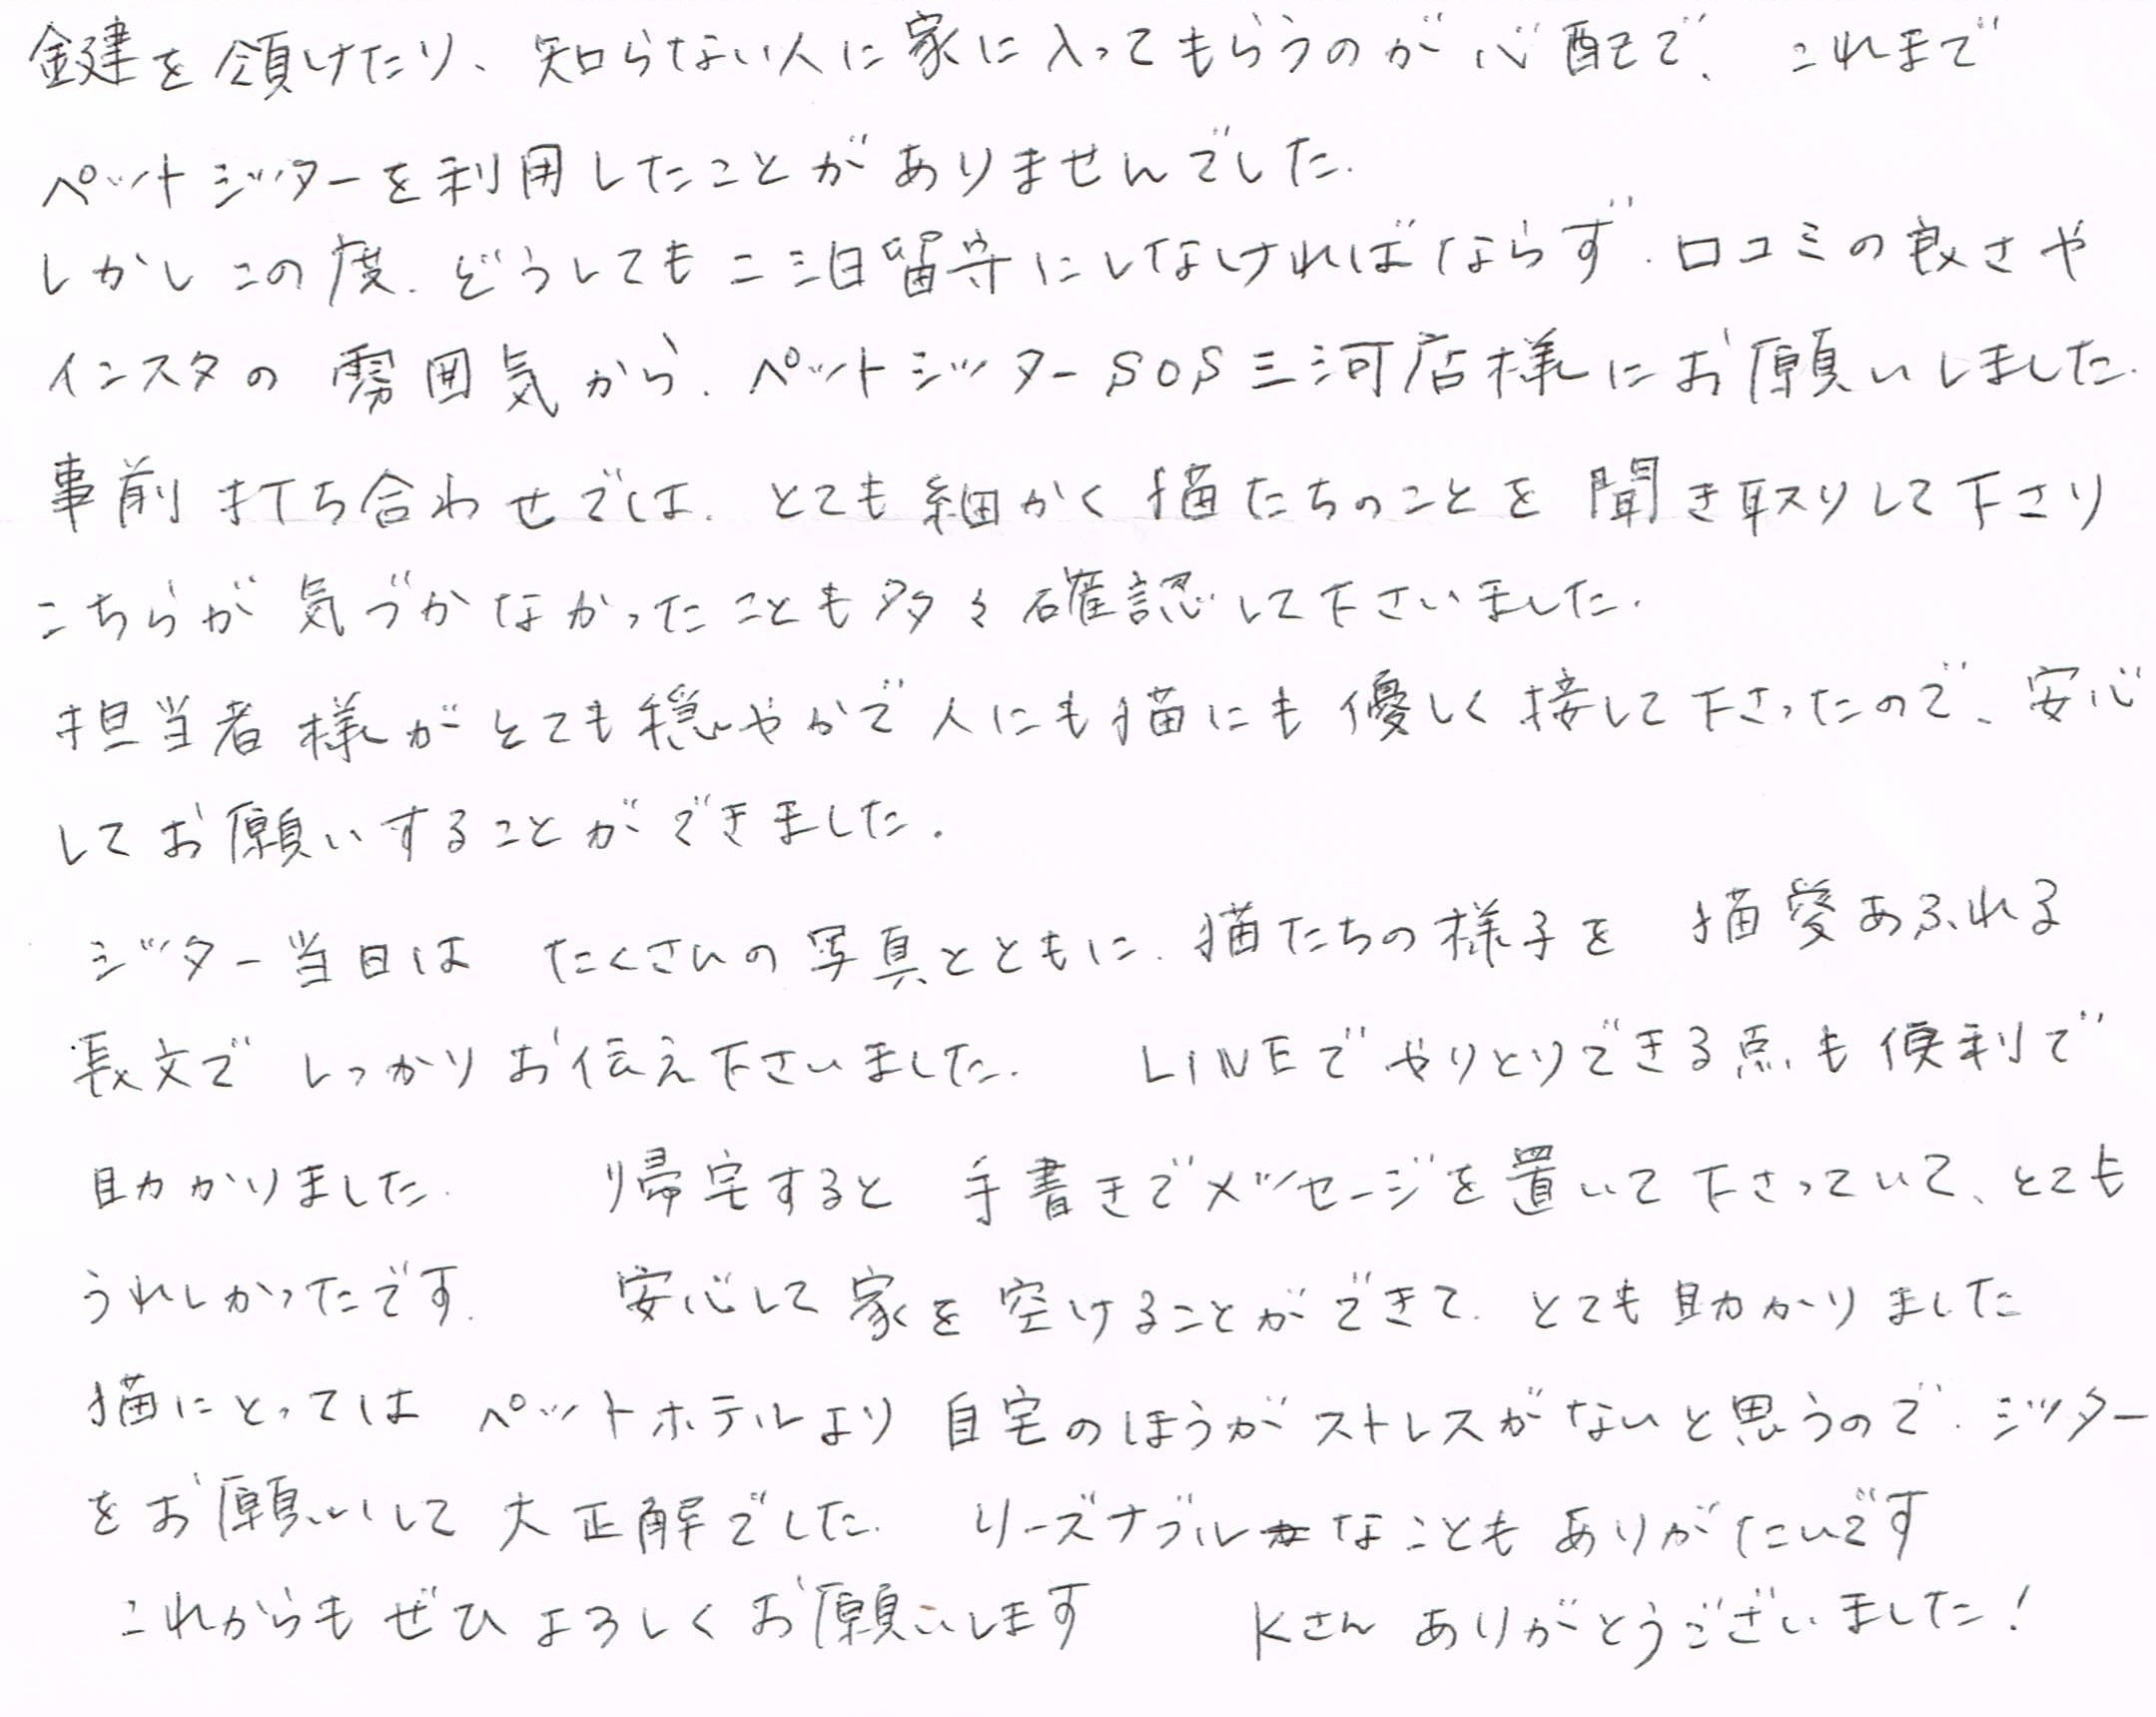 鍵を預けたり、知らない人に家に入ってもらうのが心配で、これまで
ペットシッターを利用したことがありませんでした.
しかしこの度.どうしても二三日留守にしなければならず.口コミの良さや
インスタの雰囲気から.ペットシッターSOS三河店様にお願いしました.
事前打ち合わせでは.とても細かく猫たちのことを聞き取りして下さり
こちらが気づかなかったことも多々確認して下さいました.
担当者様がとても穏やかで人にも猫にも優しく接して下さったので、安心
してお願いすることができました.
シッター当日は たくさんの写真とともに.猫たちの様子を 猫愛あふれる
長文で しっかりお伝え下さいました. LINEでやりとりできる点も便利で
助かりました. 帰宅すると 手書きでメッセージを置いて下さっていて、とても
うれしかったです. 安心して家を空けることができて.とても助かりました
猫にとっては ペットホテルより 自宅のほうがストレスがないと思うので.シッター
をお願いして 大正解でした. リーズナブルなこともありがたいです
これからもぜひ よろしくお願いします Kさん ありがとうございました!